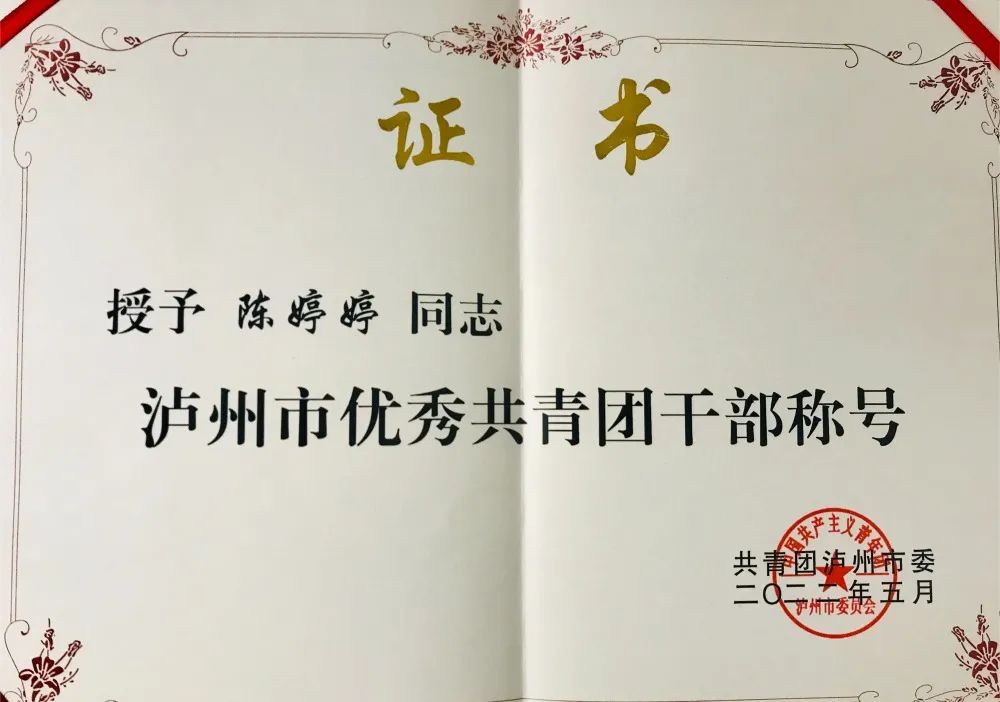 证书
授予 陈婷婷 同志
泸州市优秀共青团干部称号
中国共产主义青年团
共青团泸州市委
二〇二二年五月
泸州市委员会